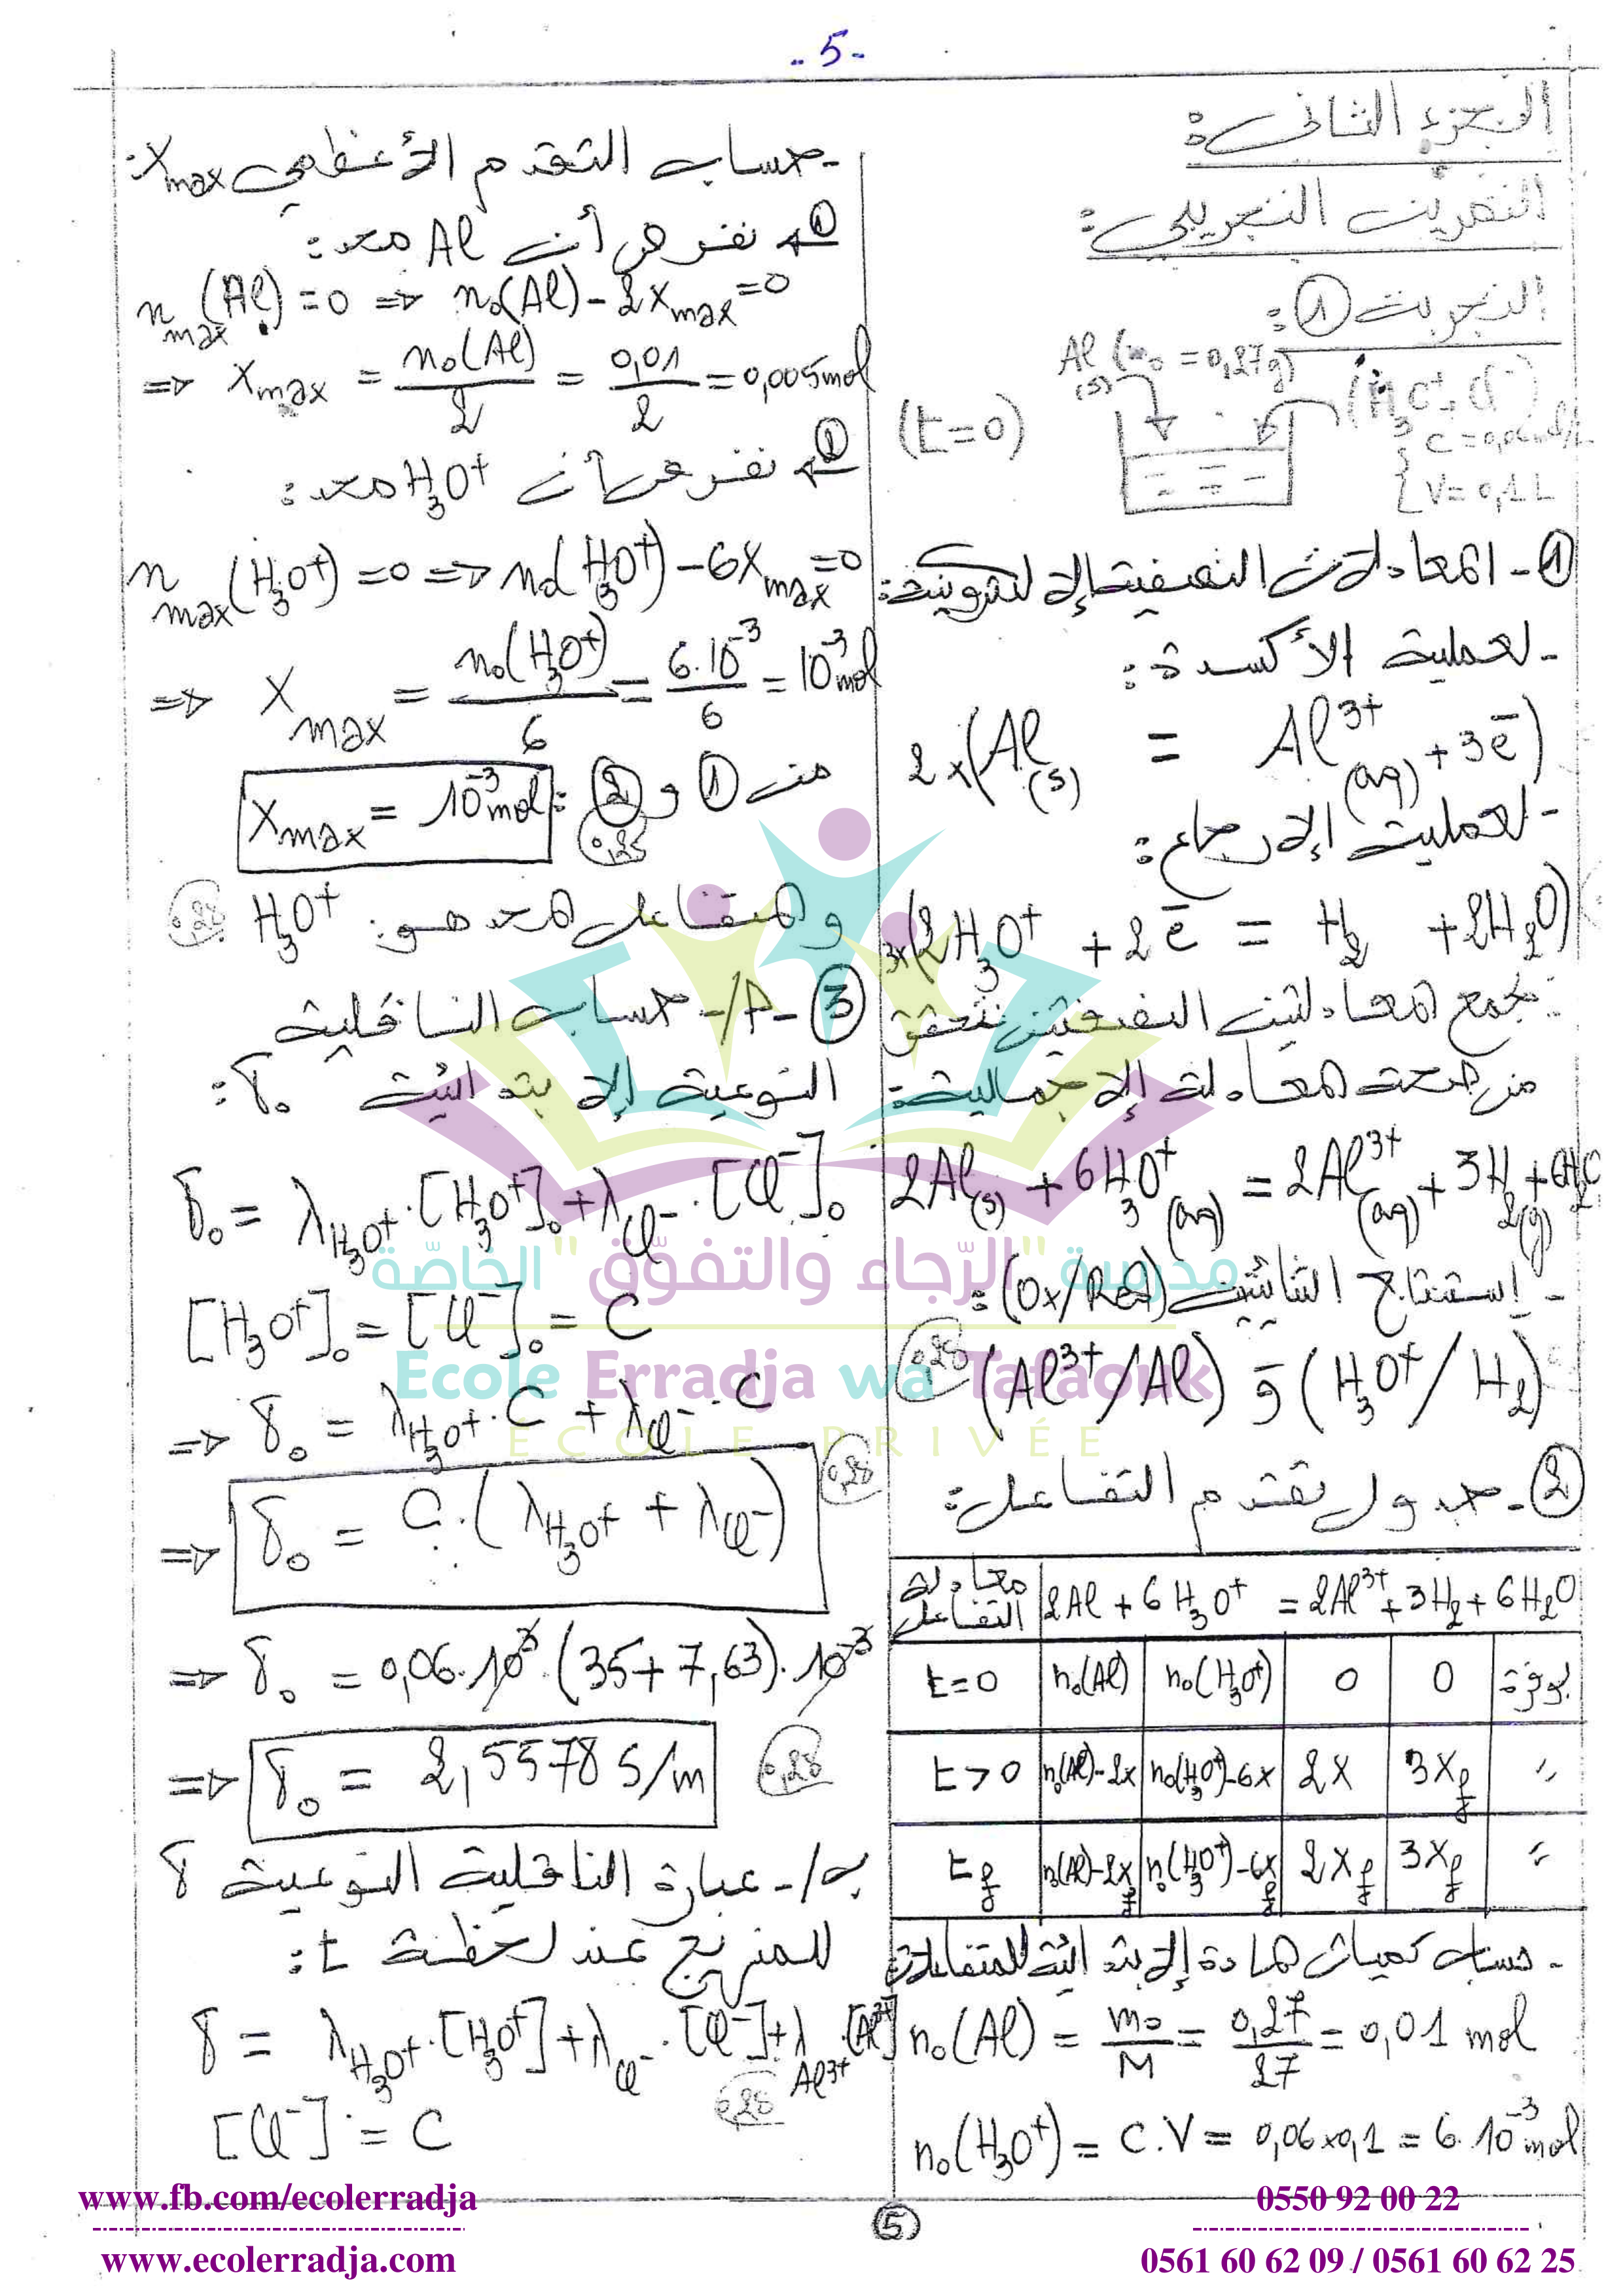 - 5 -
الجزء الثاني:
التمرين التجريبي:
التجربة ①:
Al(s) (m₀ = 0,27g)
(H₃O⁺ + Cl⁻)
(t=0)
C = 0,06 mol/L
V = 0,1 L
① - المعادلات النصفية الإلكترونية:
- لعملية الأكسدة:
2×(Al(s) = Al³⁺(aq) + 3e⁻)
- لعملية الإرجاع:
3×(2H₃O⁺ + 2e⁻ = H₂ + 2H₂O)
بجمع المعادلتين النصفيتين نتحقق
من صحة المعادلة الإجمالية:
2Al(s) + 6H₃O⁺(aq) = 2Al³⁺(aq) + 3H₂(g) + 6H₂O
- إستنتاج الثنائيتين (Ox/Red):
0,25
(Al³⁺/Al) و (H₃O⁺/H₂)
② - جدول تقدم التفاعل:
معادلة التفاعل 2Al + 6H₃O⁺ = 2Al³⁺ + 3H₂ + 6H₂O
t=0 n₀(Al) n₀(H₃O⁺) 0 0 بوفرة
t>0 n₀(Al)-2x n₀(H₃O⁺)-6x 2x 3x_f "
t_f n₀(Al)-2x_f n₀(H₃O⁺)-6x_f 2x_f 3x_f "
- حساب كميات المادة الإبتدائية للمتفاعلات:
n₀(Al) = m₀/M = 0,27/27 = 0,01 mol
n₀(H₃O⁺) = C.V = 0,06×0,1 = 6.10⁻³ mol
- حساب التقدم الأعظمي x_max:
① نفرض أن Al محد:
n_max(Al) = 0 ⇒ n₀(Al) - 2x_max = 0
⇒ x_max = n₀(Al)/2 = 0,01/2 = 0,005 mol
② نفرض أن H₃O⁺ محد:
n_max(H₃O⁺) = 0 ⇒ n₀(H₃O⁺) - 6x_max = 0
⇒ x_max = n₀(H₃O⁺)/6 = 6.10⁻³/6 = 10⁻³ mol
من ① و ②: x_max = 10⁻³ mol
0,25
والمتفاعل المحد هو: H₃O⁺
0,25
③ - أ/- حساب الناقلية
النوعية الإبتدائية δ₀:
δ₀ = λ_H₃O⁺.[H₃O⁺]₀ + λ_Cl⁻.[Cl⁻]₀
[H₃O⁺]₀ = [Cl⁻]₀ = C
⇒ δ₀ = λ_H₃O⁺.C + λ_Cl⁻.C
0,25
⇒ δ₀ = C.(λ_H₃O⁺ + λ_Cl⁻)
⇒ δ₀ = 0,06.10³.(35+7,63).10⁻³
⇒ δ₀ = 2,5578 S/m
0,25
ب/- عبارة الناقلية النوعية δ
للمزيج عند لحظة t:
δ = λ_H₃O⁺.[H₃O⁺] + λ_Cl⁻.[Cl⁻] + λ_Al³⁺.[Al³⁺]
0,25
[Cl⁻] = C
مدرسة "الرّجاء والتفوّق" الخاصّة
Ecole Erradja wa Tafaouk
ÉCOLE PRIVÉE
www.fb.com/ecolerradja
www.ecolerradja.com
5
0550 92 00 22
0561 60 62 09 / 0561 60 62 25